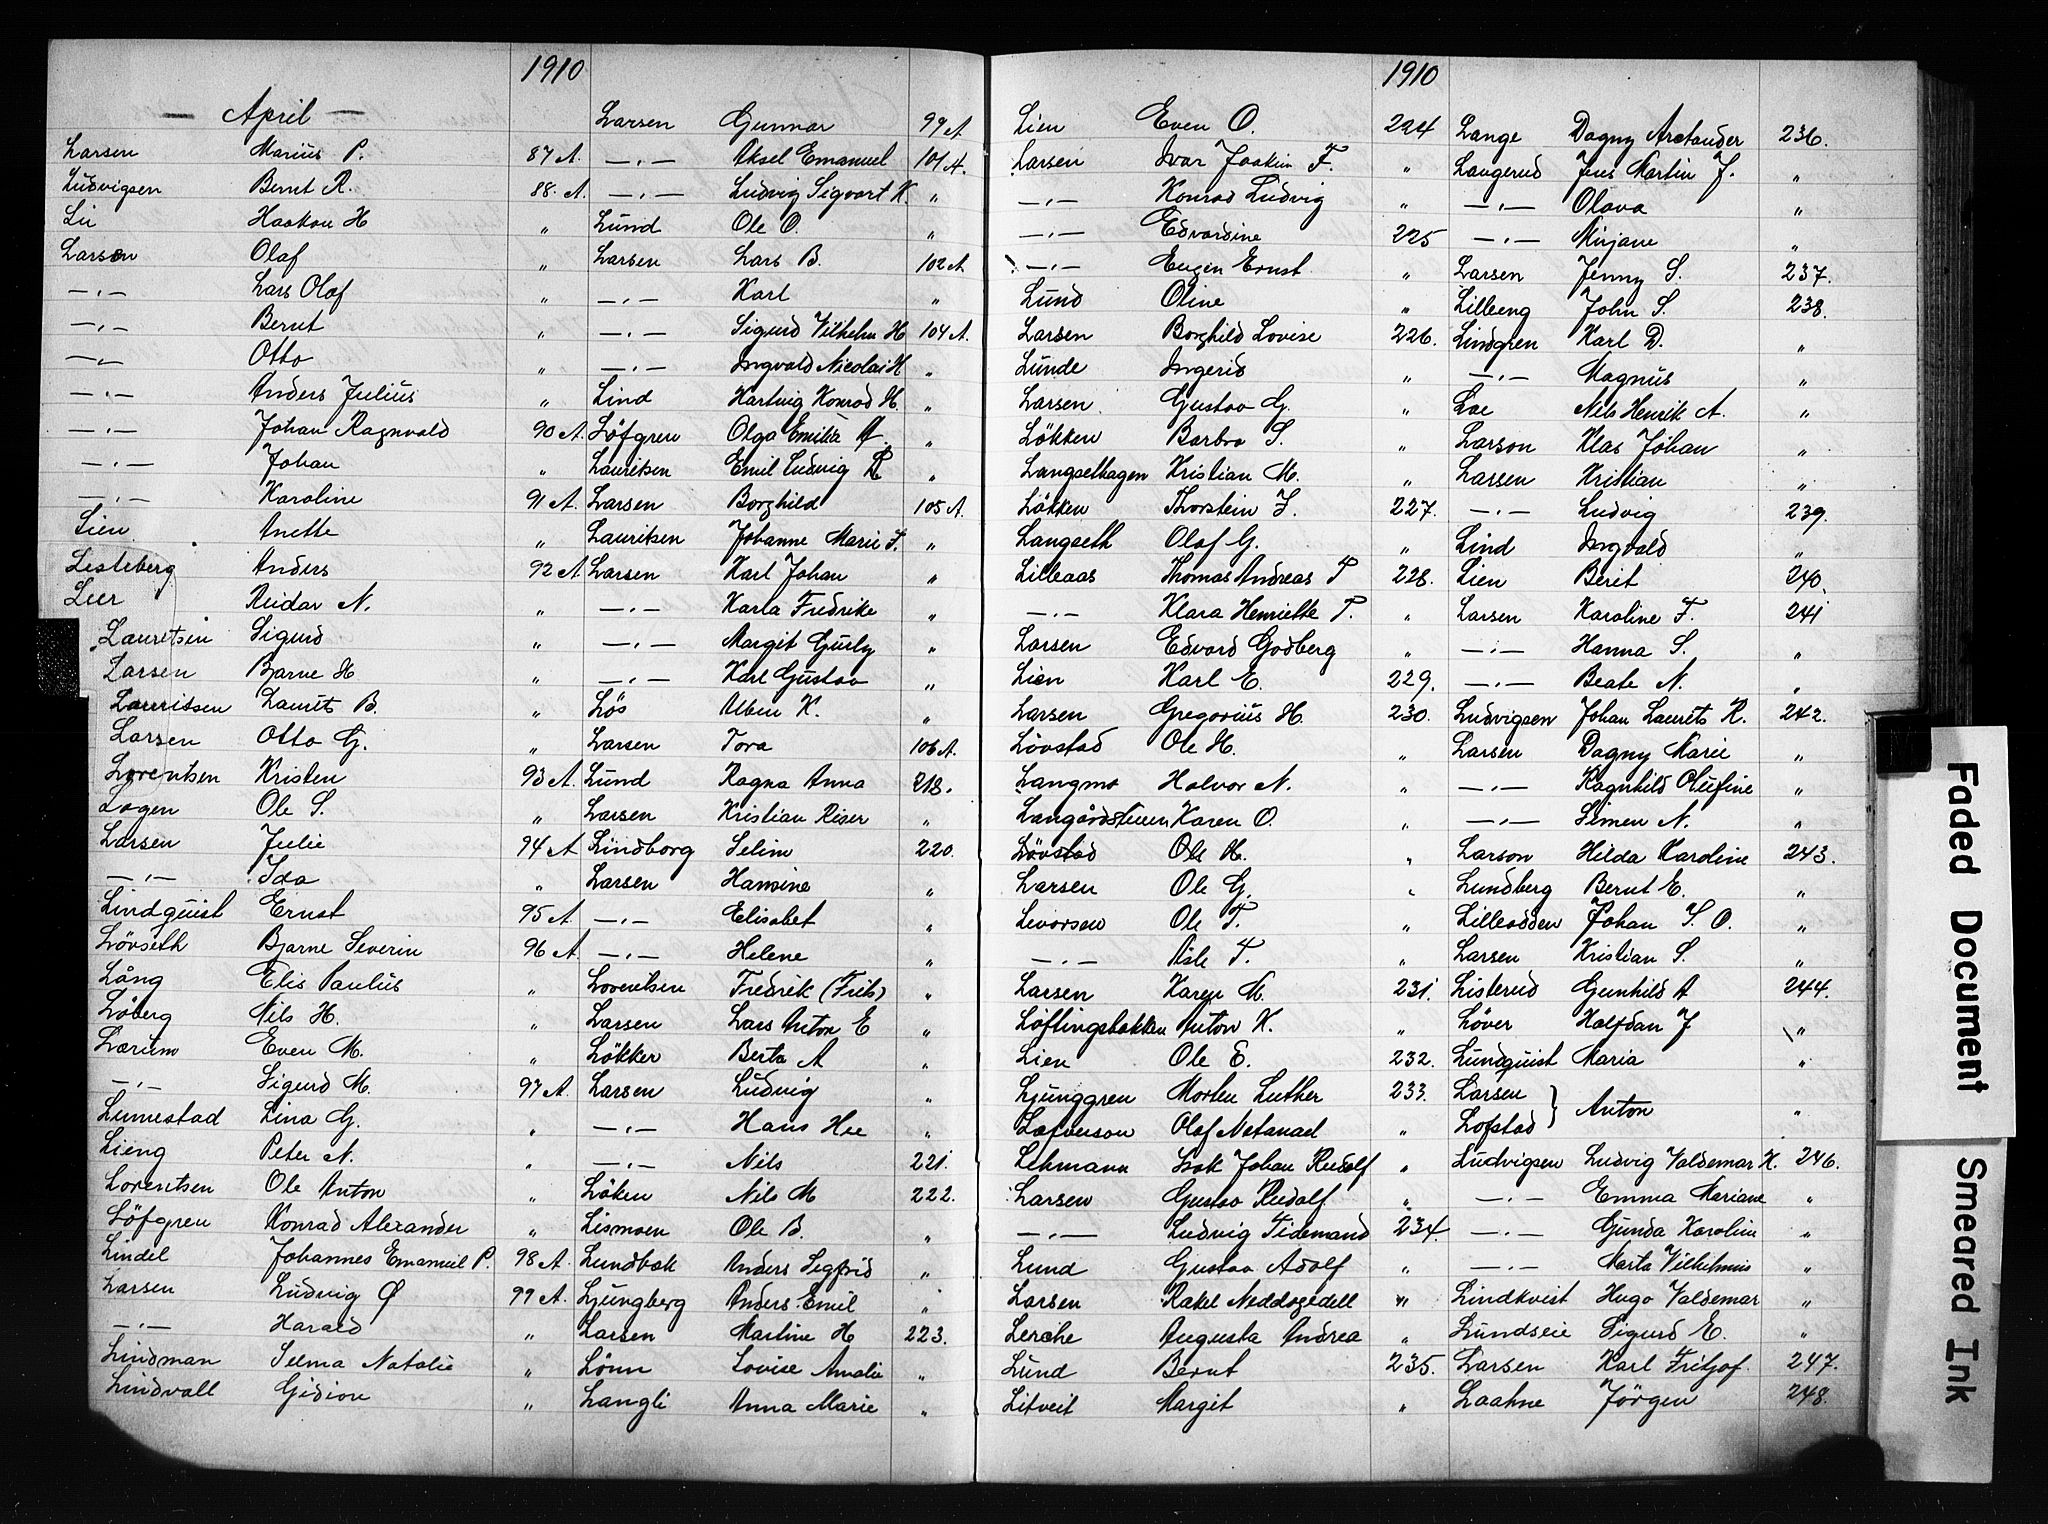 1910
— April —
Larsen Marius P. 87 A.
Ludvigsen Bernt R. 88. A
Li Haakon H „
Larsen Olaf „
—„— Lars Olaf „
—„— Bernt „
—„— Otto „
—„— Anders Julius „
—„— Johan Ragnvald 90 A
—„— Johan „
—„— Karoline 91 A
Lien Anette „
Lesteberg Anders 92 A
Leer Reidar N. „
Lauretsen Sigurd „
Larsen Bjarne H „
Lauritsen Laurits B. „
Larsen Otto G. „
Lorentsen Kristen 93 A
Lagen Ole S. „
Larsen Julie 94 A
—„— Ida „
Lindquist Ernst 95 A
Lövseth Bjarne Severin 96 A
Lång Elis Paulus „
Löberg Nils H. „
Lærum Even M. „
—„— Sigurd M. 97 A
Lunestad Lina G. „
Lieng Peter N. „
Lorentsen Ole Anton „
Löfgren Konrad Alexander „
Lindel Johannes Emanuel P. 98 A
Larsen Ludvig Ø 99 A.
—„— Harald „
Lindman Selma Natalie „
Lindvall Gidion „
Larsen Gunnar 99 A
—„— Aksel Emanuel 101 A.
—„— Ludvig Sigvart K. „
Lund Ole O. „
Larsen Lars B. 102 A
—„— Karl „
—„— Sigurd Vilhelm H 104 A.
—„— Ingvald Nicolai H „
Lind Hartvig Konrad H. „
Löfgren Olga Emilia A. „
Lauritsen Emil Ludvig R „
Larsen Borghild 105 A.
Lauritsen Johanne Marie F. „
Larsen Karl Johan „
—„— Karla Fredrike „
—„— Margit Gurly „
—„— Karl Gustav „
Lös Alben K. „
Larsen Tora 106 A.
Lund Ragna Anna 218.
Larsen Kristian Riser „
Lindborg Selim 220.
Larsen Hansine „
—„— Elisabet „
—„— Helene „
Lorentsen Fredrik (Frits) „
Larsen Lars Anton E „
Lökker Berta A „
Larsen Ludvig „
—„— Hans Hee „
—„— Nils 221.
Löken Nils M 222.
Lismoen Ole B. „
Lundbak Anders Segfrid „
Ljungberg Anders Emil „
Larsen Martine H 223.
Lönn Lovise Amalie „
Langli Anna Marie „
1910
Lien Even O. 224
Larsen Ivar Joakim F. „
—„— Konrad Ludvig „
—„— Edvardine 225
—„— Eugen Ernst „
Lund Oline „
Larsen Borghild Lovise 226.
Lunde Ingerid „
Larsen Gustav G. „
Lökken Barbro S. „
Langselhagen Kristian M. „
Lökken Thorstein J. 227.
Langseth Olaf G. „
Lilleaas Thomas Andreas T 228.
—„— Klara Henriette T. „
Larsen Edvard Godberg „
Lien Karl E. 229.
Larsen Gregorius H. 230.
Lövstad Ole H. „
Langmo Halvor N. „
Langårdstuen Karen O. „
Lövstad Ole H. „
Larsen Ole G. „
Levorsen Ole T. „
—„— Asle T. „
Larsen Karen M. 231.
Löftingsbakken Anton K. „
Lien Ole E. 232.
Ljunggren Morten Luther 233.
Lafverson Olaf Natanael „
Lehmann Isak Johan Rudolf „
Larsen Gustav Rudolf „
—„— Ludvig Tidemand 234.
Lund Gustav Adolf „
Larsen Rakel Neddogedell „
Lerche Augusta Andrea „
Lund Bernt 235.
Litveit Margit „
Lange Dagny Arctander 236.
Langerud Jens Martin J. „
—„— Olava „
—„— Mirjane „
Larsen Jenny S. 237.
Lilleeng John S. 238.
Lindgren Karl D. „
—„— Magnus „
Loe Nils Henrik A. „
Larson Klas Johan „
Larsen Kristian „
—„— Ludvig 239.
Lind Ingvald „
Lien Berit 240.
Larsen Karoline F. 241
—„— Hanna S. „
—„— Beate N. „
Ludvigsen Johan Laurits R. 242.
Larsen Dagny Marie „
—„— Ragnhild Olufine „
—„— Simen N. „
Larson Hilda Karoline 243.
Lundberg Bernt E. „
Lilleodden Johan S. O. „
Larsen Kristian S. „
Listerud Gunhild A 244.
Löver Halfdan J „
Lundquist Maria „
Larsen
Lofstad } Anton „
Ludvigsen Ludvig Valdemar K. 246.
—„— Emma Mariane „
—„— Gunda Karoline „
—„— Marta Vilhelmine „
Lindkvist Hugo Valdemar „
Lundseie Sigurd E. „
Larsen Karl Fritjof. 247.
Laahne Jörgen 248.
Faded Document Smeared Ink